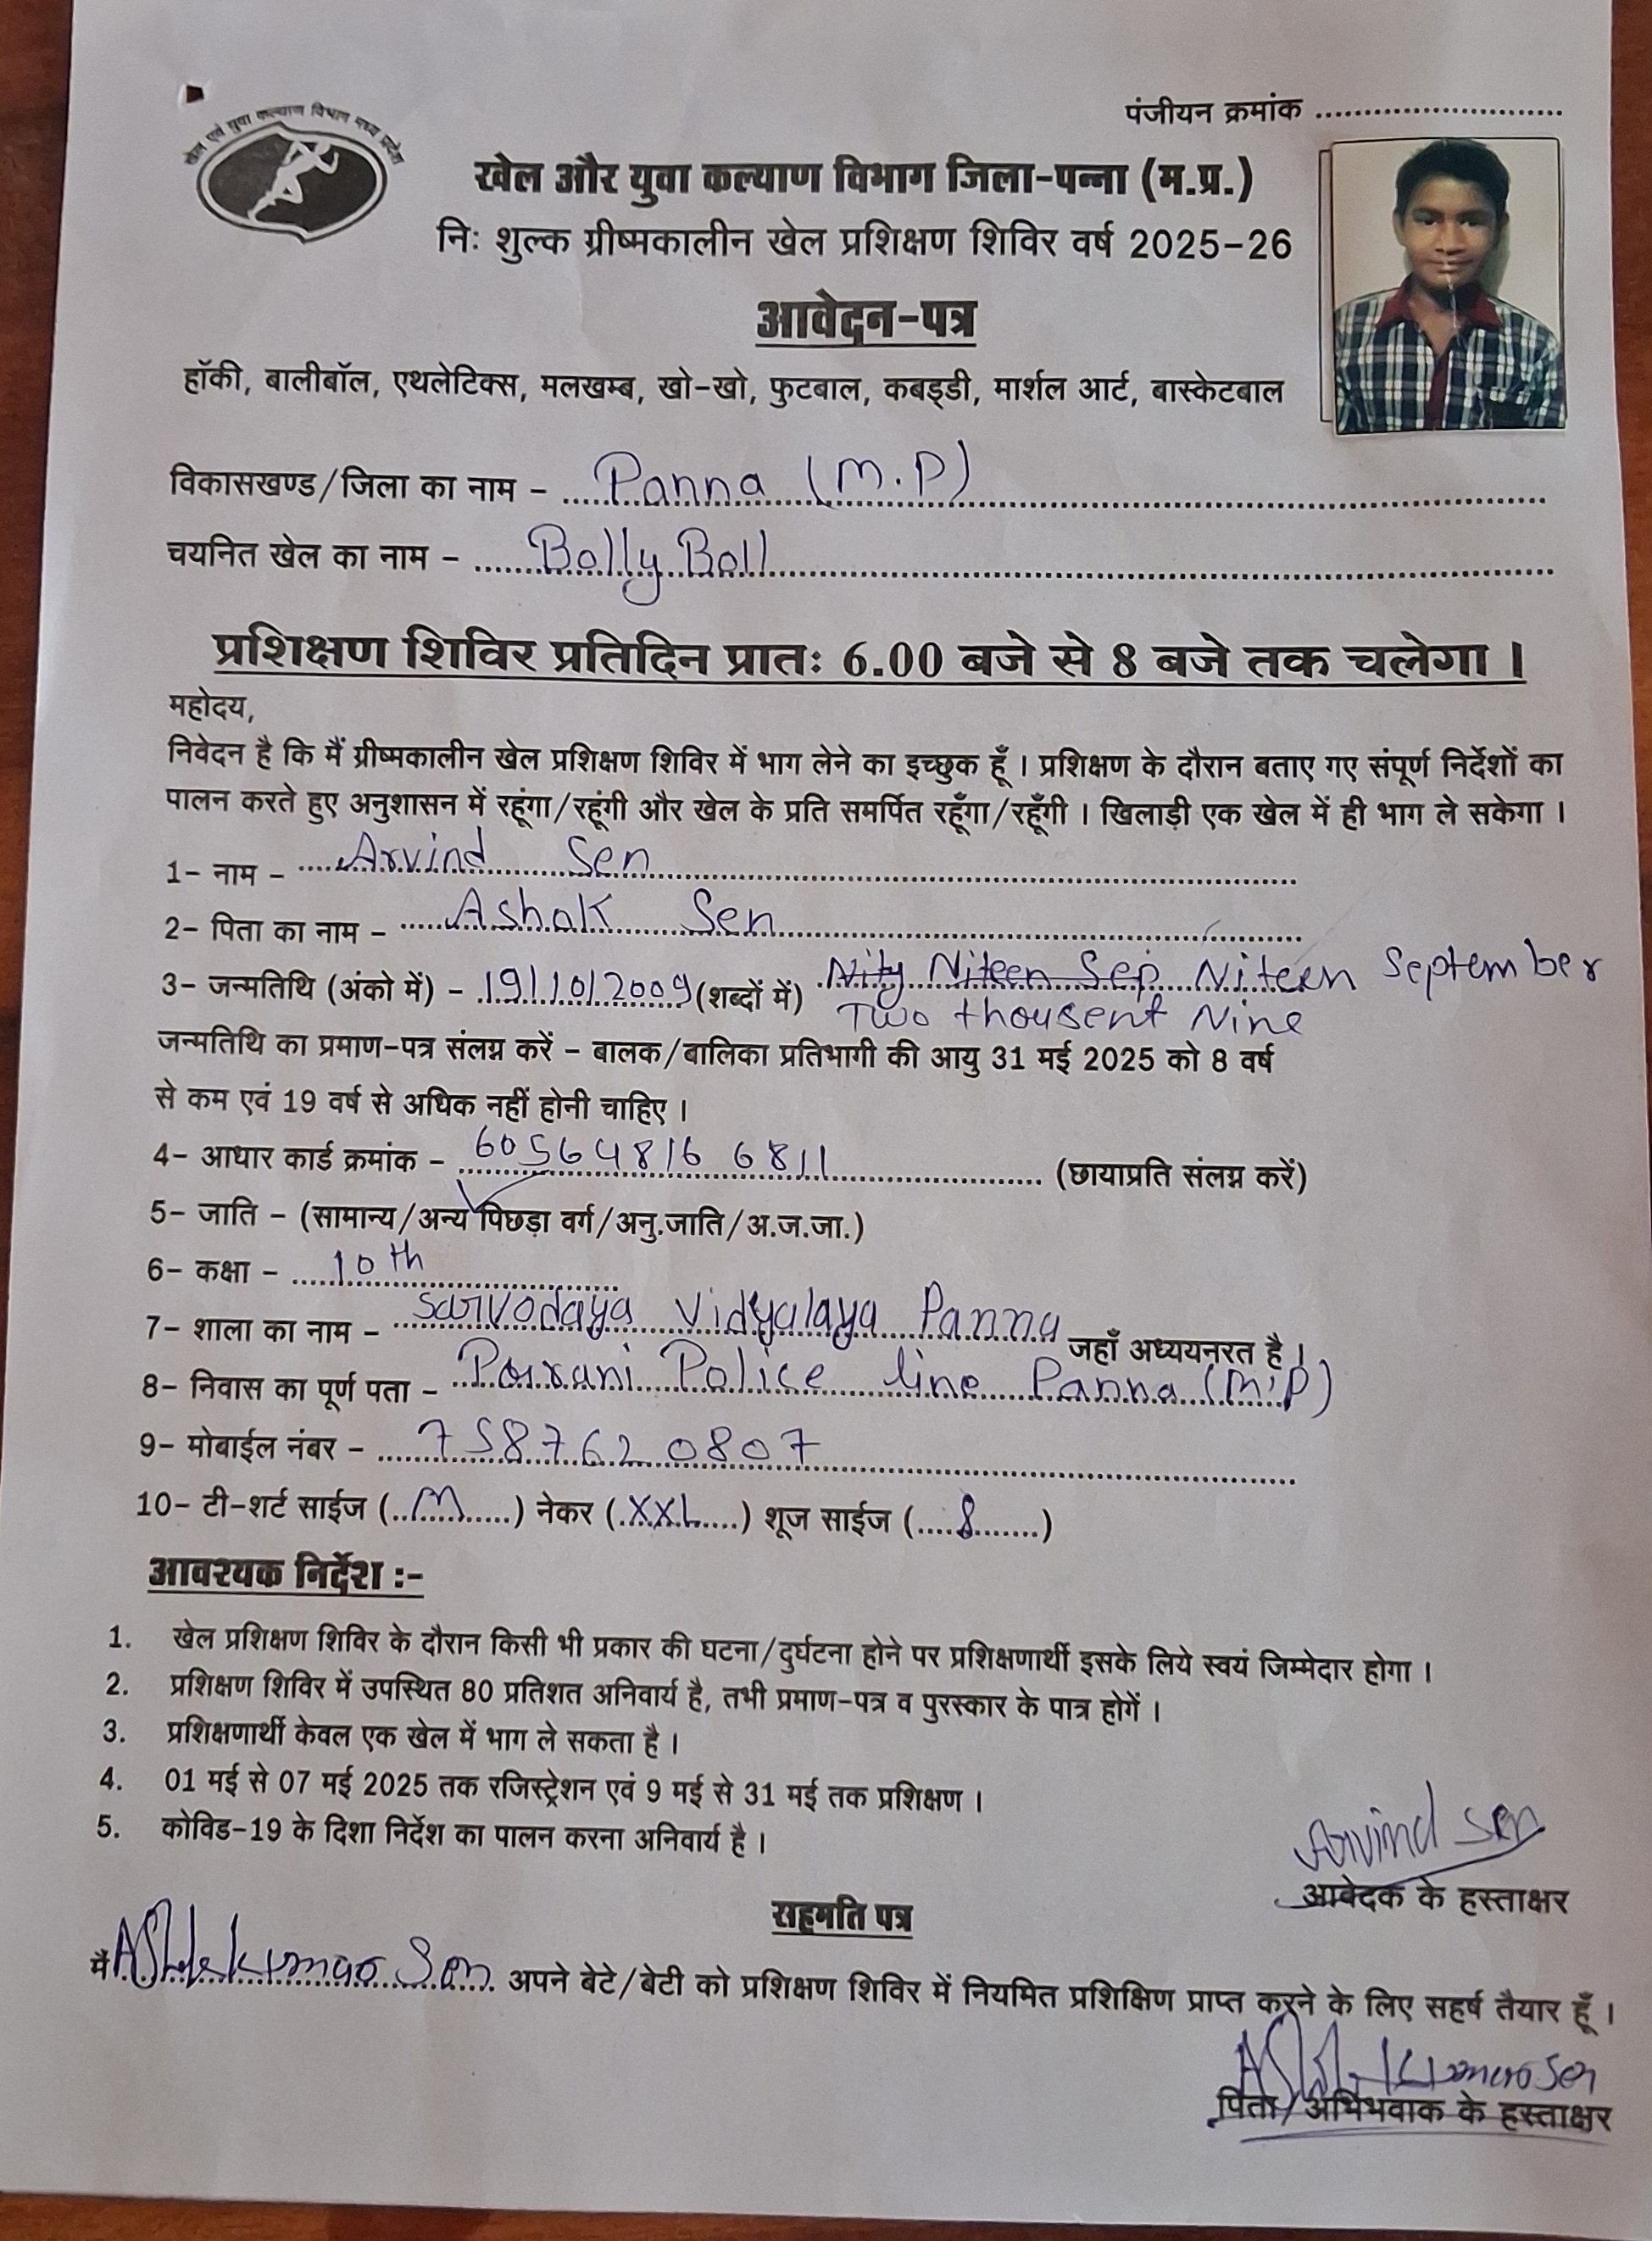 पंजीयन क्रमांक ........................
खेल एवं युवा कल्याण विभाग मध्य प्रदेश
खेल और युवा कल्याण विभाग जिला-पन्ना (म.प्र.)
निः शुल्क ग्रीष्मकालीन खेल प्रशिक्षण शिविर वर्ष 2025-26
आवेदन-पत्र
हॉकी, बालीबॉल, एथलेटिक्स, मलखम्ब, खो-खो, फुटबाल, कबड्डी, मार्शल आर्ट, बास्केटबाल
विकासखण्ड/जिला का नाम - Panna (M.P)
चयनित खेल का नाम - Bolly Boll
प्रशिक्षण शिविर प्रतिदिन प्रातः 6.00 बजे से 8 बजे तक चलेगा ।
महोदय,
निवेदन है कि मैं ग्रीष्मकालीन खेल प्रशिक्षण शिविर में भाग लेने का इच्छुक हूँ । प्रशिक्षण के दौरान बताए गए संपूर्ण निर्देशों का
पालन करते हुए अनुशासन में रहूंगा/रहूंगी और खेल के प्रति समर्पित रहूँगा/रहूँगी । खिलाड़ी एक खेल में ही भाग ले सकेगा ।
1- नाम - Arvind Sen
2- पिता का नाम - Ashok Sen
3- जन्मतिथि (अंको में) - 19/10/2009 (शब्दों में) Niteen Sep Niteen September
Two thousent Nine
जन्मतिथि का प्रमाण-पत्र संलग्न करें - बालक/बालिका प्रतिभागी की आयु 31 मई 2025 को 8 वर्ष
से कम एवं 19 वर्ष से अधिक नहीं होनी चाहिए ।
4- आधार कार्ड क्रमांक - 60564816 6811 (छायाप्रति संलग्न करें)
5- जाति - (सामान्य/अन्य पिछड़ा वर्ग/अनु.जाति/अ.ज.जा.)
6- कक्षा - 10th
7- शाला का नाम - Sarvodaya Vidyalaya Panna जहाँ अध्ययनरत है ।
8- निवास का पूर्ण पता - Police line Panna (M.P)
9- मोबाईल नंबर - 7587620807
10- टी-शर्ट साईज (..M......) नेकर (.XXL....) शूज साईज (....8.......)
आवश्यक निर्देश :-
1. खेल प्रशिक्षण शिविर के दौरान किसी भी प्रकार की घटना/दुर्घटना होने पर प्रशिक्षणार्थी इसके लिये स्वयं जिम्मेदार होगा ।
2. प्रशिक्षण शिविर में उपस्थित 80 प्रतिशत अनिवार्य है, तभी प्रमाण-पत्र व पुरस्कार के पात्र होगें ।
3. प्रशिक्षणार्थी केवल एक खेल में भाग ले सकता है ।
4. 01 मई से 07 मई 2025 तक रजिस्ट्रेशन एवं 9 मई से 31 मई तक प्रशिक्षण ।
5. कोविड-19 के दिशा निर्देश का पालन करना अनिवार्य है ।
Arvind Sen
आवेदक के हस्ताक्षर
सहमति पत्र
मै Sen अपने बेटे/बेटी को प्रशिक्षण शिविर में नियमित प्रशिक्षिण प्राप्त करने के लिए सहर्ष तैयार हूँ ।
Sen
पिता/अभिभवाक के हस्ताक्षर